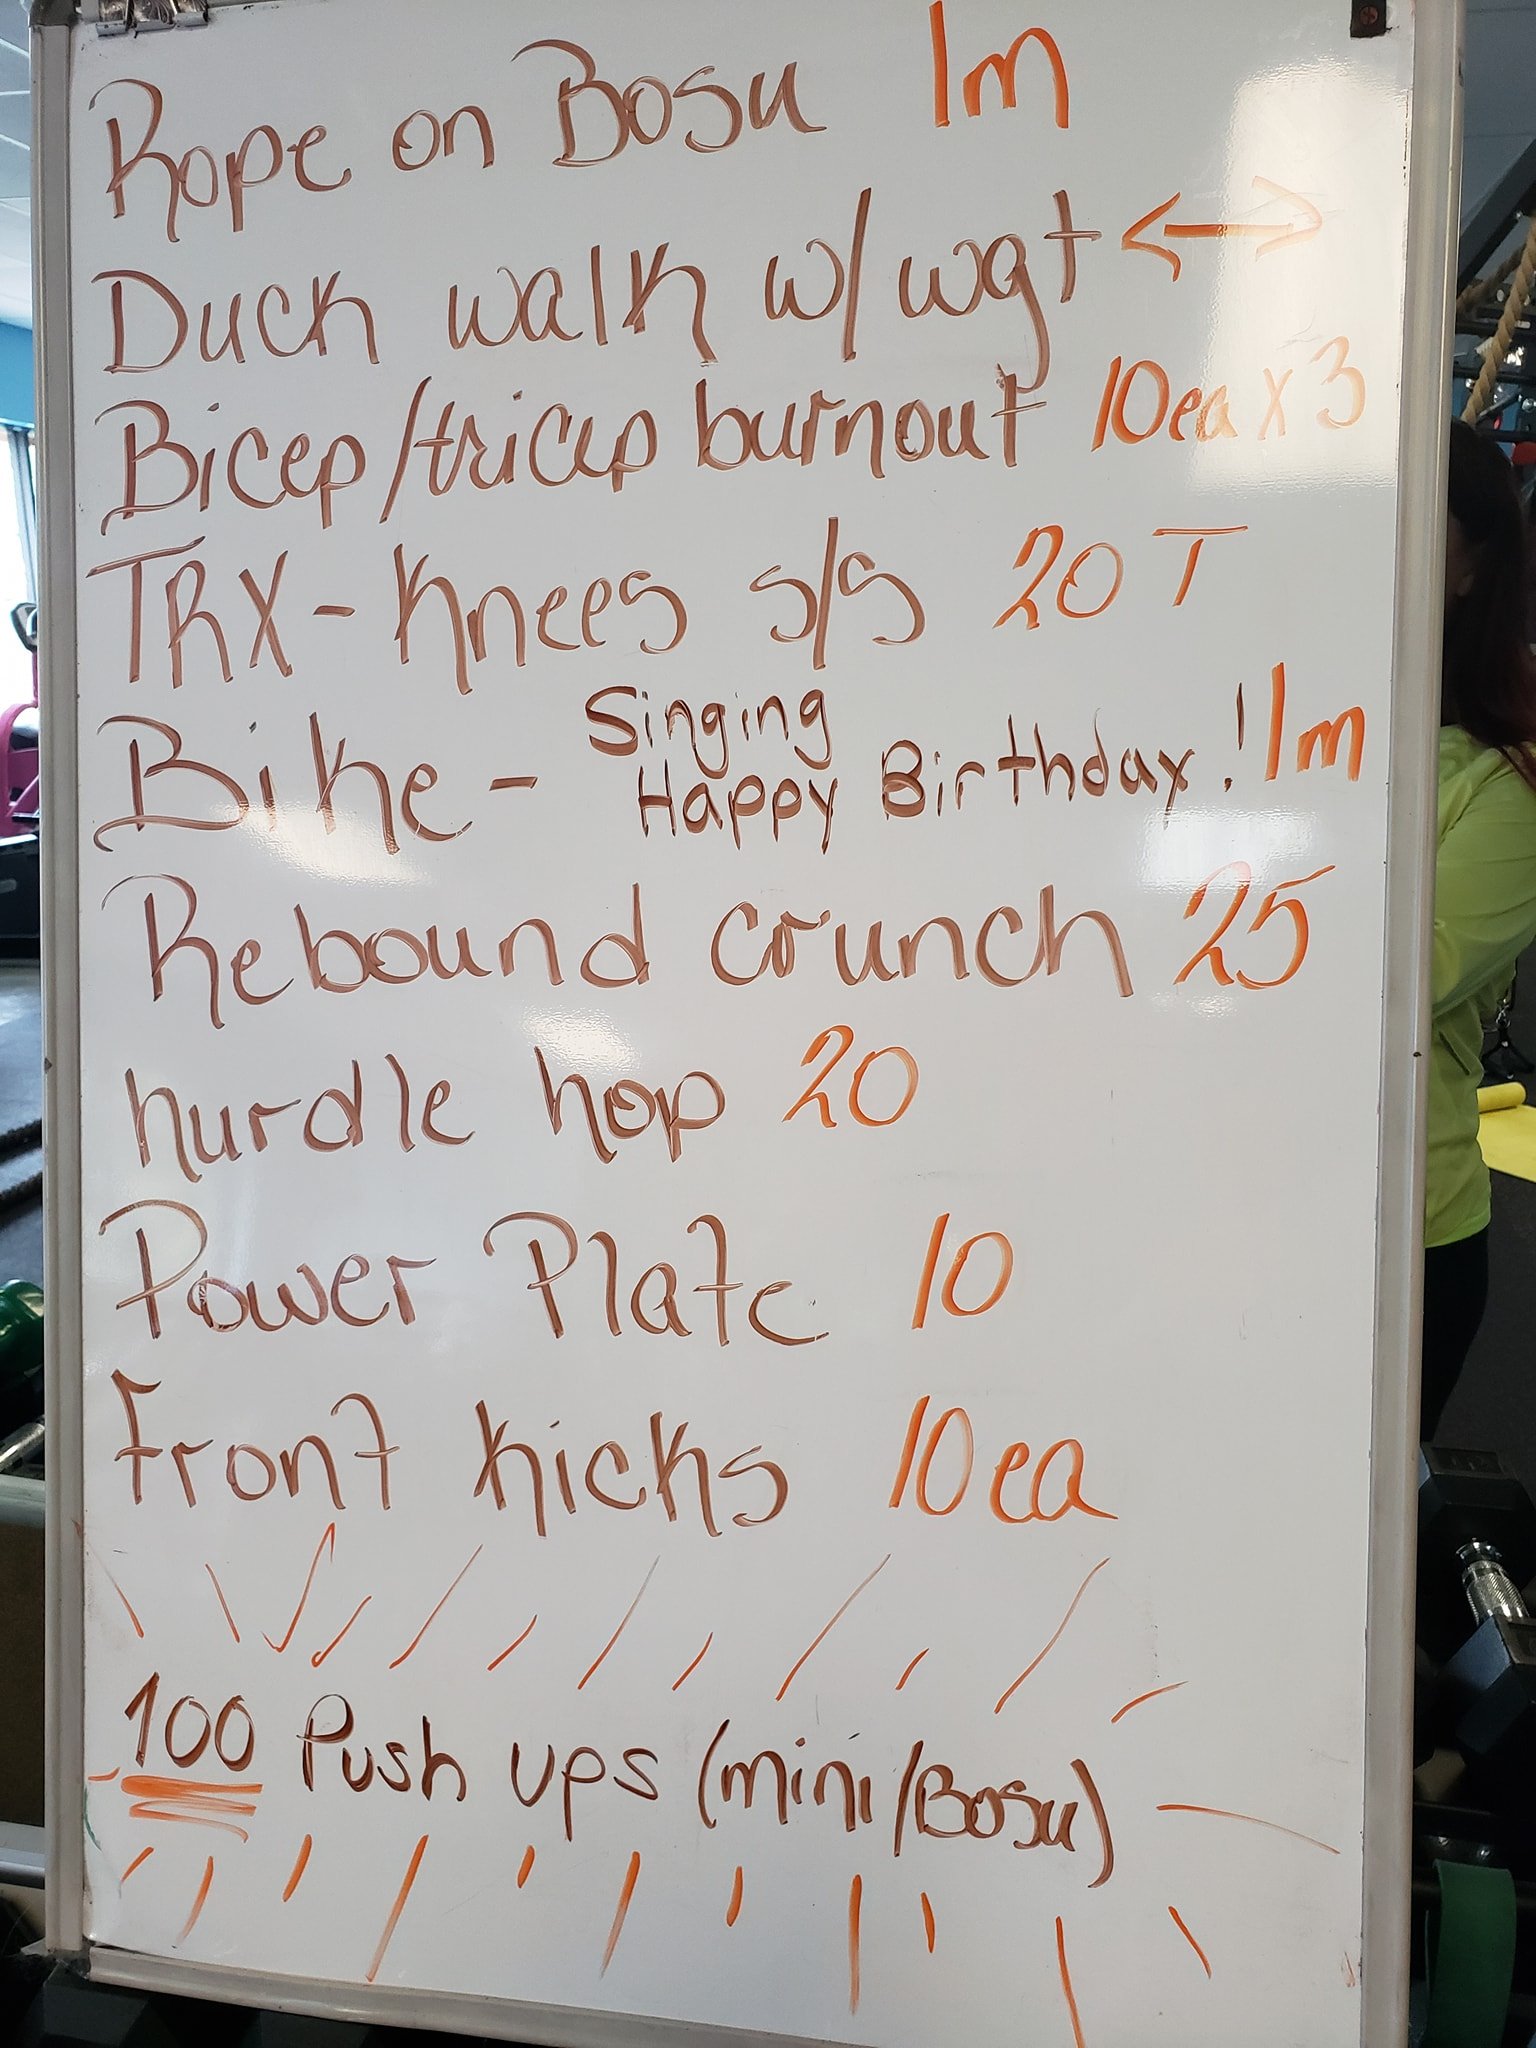 Rope on Bosu 1m
Duck walk w/wgt <->
Bicep/tricep burnout 10ea x 3
TRX - Knees s/s 20 T
Bike - Singing Happy Birthday! 1m
Rebound crunch 25
hurdle hop 20
Power Plate 10
Front kicks 10ea
100 Push ups (mini/Bosu)